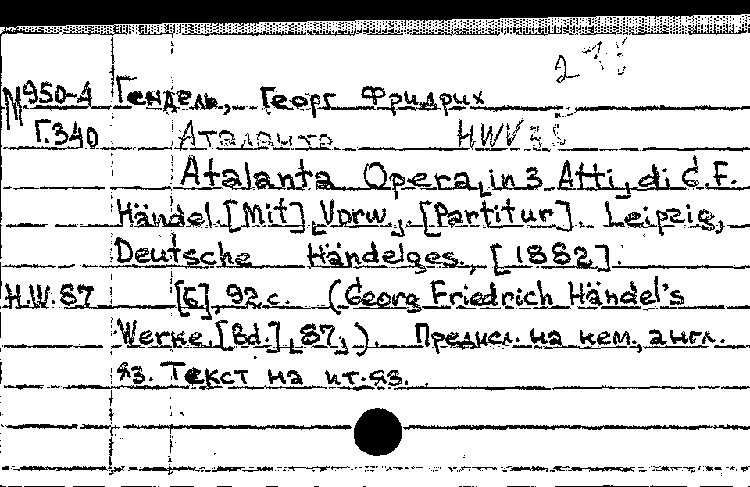 М950-4 Гендель, Георг Фридрих
Г.340 Аталанта HWV 35
Atalanta Opera in 3 Atti di G.F.
Händel. [Mit] Vorw. [Partitur]. Leipzig,
Deutsche Händelges., [1882].
H.W.87 [6], 92 с. (Georg Friedrich Händel's
Werke. [Bd.] 87.). Предисл. на нем., англ.
яз. Текст на ит. яз.